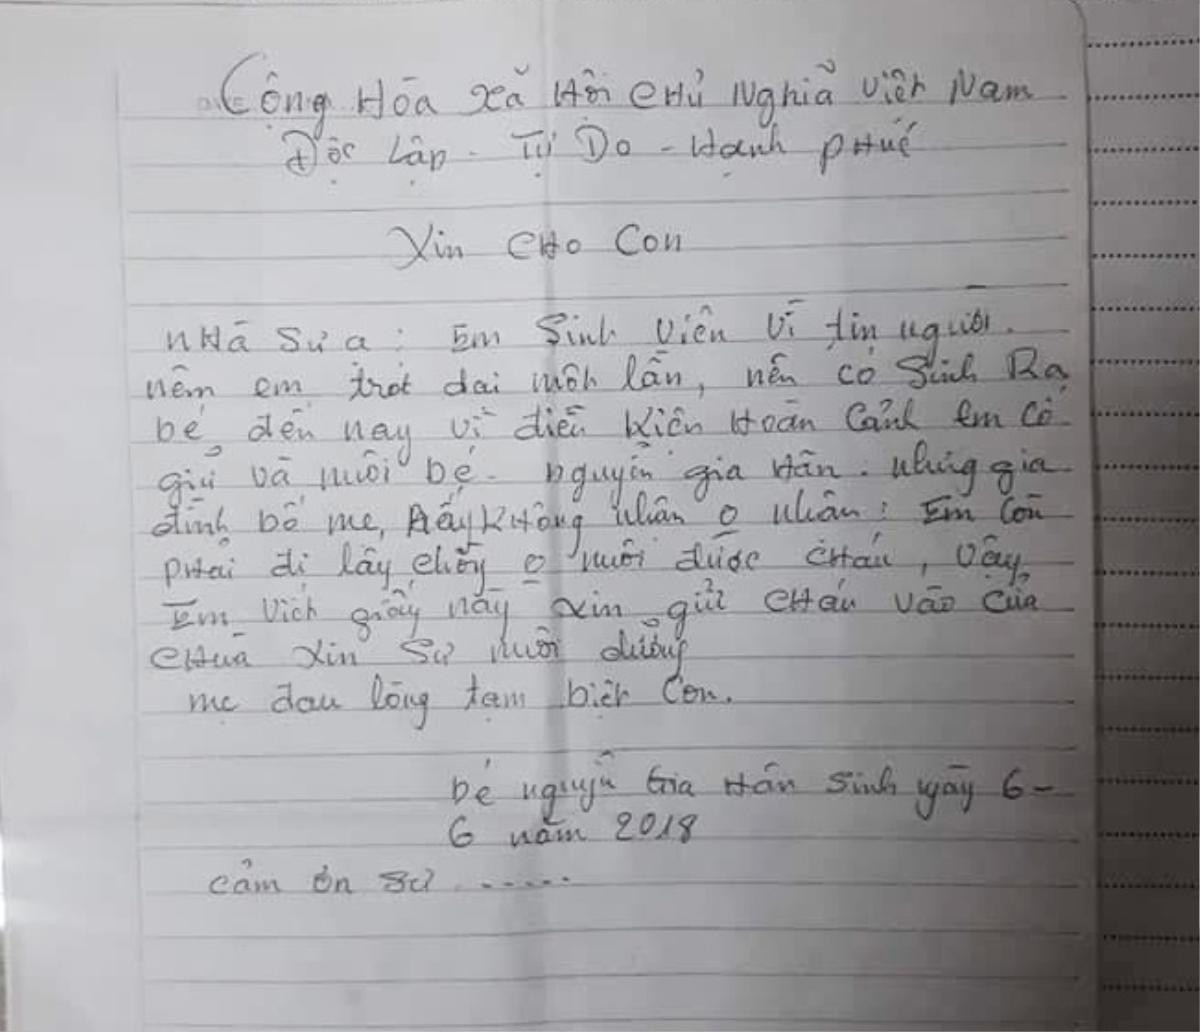 Cộng Hòa Xã Hội Chủ Nghĩa Việt Nam
Độc Lập - Tự Do - Hạnh Phúc
Xin Cho Con
Nhà Sư ạ: Em Sinh Viên Vì tin người.
nêm em trót dại một lần, nên có Sinh Ra
bé, đến nay vì điều Kiện Hoàn Cảnh Em Có
giữ và nuôi bé. Nguyễn gia Hân. nhưng gia
đình bố mẹ, Ấy Không nhận o nhận: Em Còn
phải đi lấy chồng o nuôi được Cháu, Vậy
Em Viết giấy này xin gửi Cháu vào Cửa
Chùa Xin Sư nuôi dưỡng
mẹ đau lòng tạm biệt Con.
bé nguyễn Gia Hân Sinh ngày 6-
6 năm 2018
cảm ơn sư ......